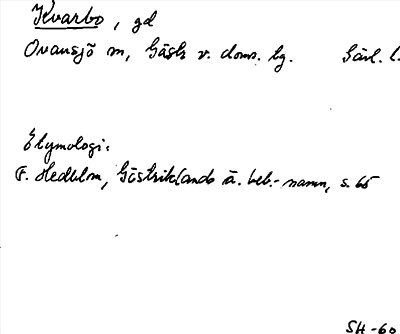 Kvarbo, gd
Ovansjö sn, Gästr. v. doms. hg. Gävl. l.
Etymologi:
F. Hedblom, Gästriklands ä. beb.-namn, s. 65
SH-60